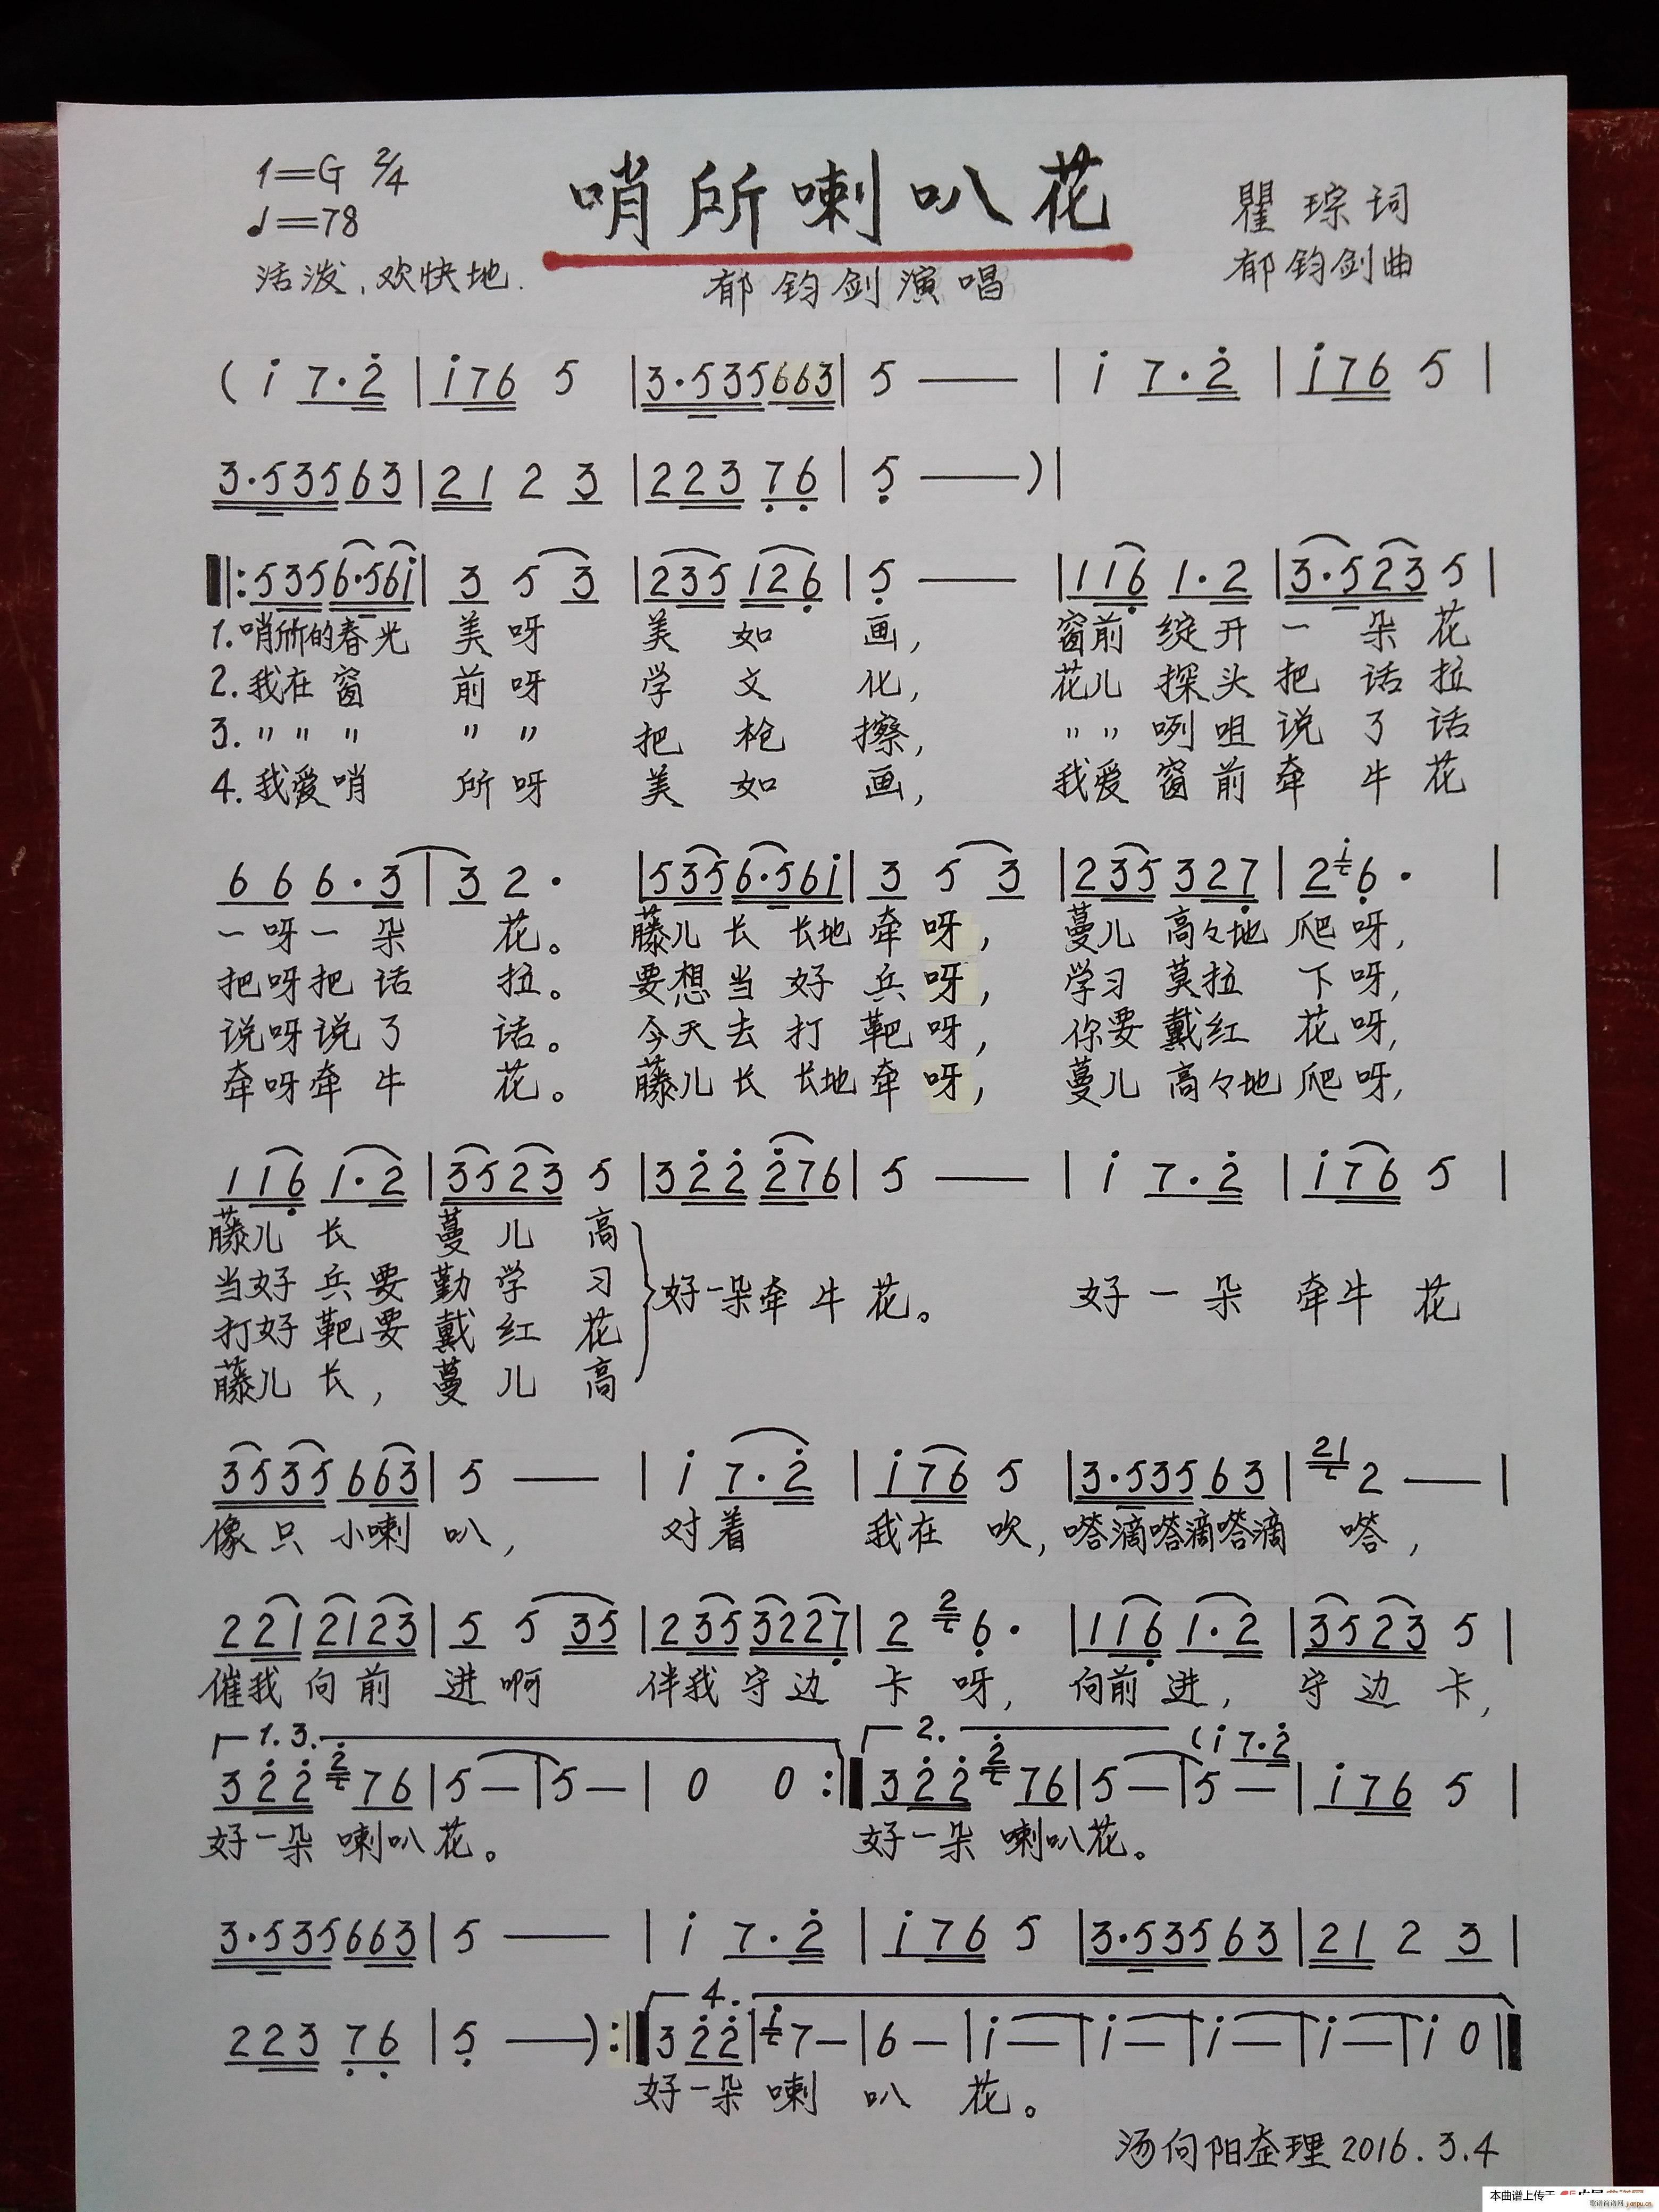 1=G 2/4
哨所喇叭花
瞿琮词
♩=78
郁钧剑曲
活泼、欢快地.
郁钧剑演唱
( i 7·2 | i76 5 | 3·535663 | 5 — | i 7·2 | i76 5 |
3·53563 | 21 2 3 | 223 76 | 5 — ) |
‖: 5356·56i | 3 5 3 | 235 126 | 5 — | 116 1·2 | 3·523 5 |
1.哨所的春光 美呀 美 如 画, 窗前 绽开 一 朵 花
2.我在窗 前呀 学 文 化, 花儿 探头 把 话 拉
3.〃〃〃 〃〃 把 枪 擦, 〃〃 咧咀 说 了 话
4.我爱哨 所呀 美 如 画, 我爱 窗前 牵 牛 花
6 6 6·3 | 3 2· | 5356·56i | 3 5 3 | 235 327 | 2 i 6· |
一呀一朵 花。 藤儿长长地牵呀, 蔓儿 高々地 爬呀,
把呀把话 拉。 要想当好兵呀, 学习 莫拉 下呀,
说呀说了 话。 今天去打靶呀, 你要 戴红 花呀,
牵呀牵牛 花。 藤儿长长地牵呀, 蔓儿 高々地 爬呀,
116 1·2 | 3523 5 | 322 276 | 5 — | i 7·2 | i76 5 |
藤儿长 蔓儿 高
当好兵要勤学 习
打好靶要戴红 花
藤儿长, 蔓儿 高
好一朵牵牛花。 好一朵 牵牛 花
3535 663 | 5 — | i 7·2 | i76 5 | 3·53563 | 21 2 — |
像只小喇 叭, 对着 我在 吹, 嗒滴嗒滴嗒滴 嗒,
221 2123 | 5 5 35 | 235 3227 | 2 2 6· | 116 1·2 | 3523 5 |
催我向前 进啊 伴我守边 卡 呀, 向前进, 守边 卡,
1. 3. 2. (i 7·2
322 2 76 | 5 — | 5 — | 0 0 :‖ 322 2 76 | 5 — | 5 — | i76 5 |
好一朵 喇叭花。 好一朵 喇叭花。
3·535663 | 5 — | i 7·2 | i76 5 | 3·53563 | 21 2 3 |
4.
223 76 | 5 — ) :‖ 322 | i 7 — | 6 — | i — | i — | i — | i — | i 0 ‖
好一朵 喇 叭 花。
汤向阳整理2016.3.4
本曲谱上传于